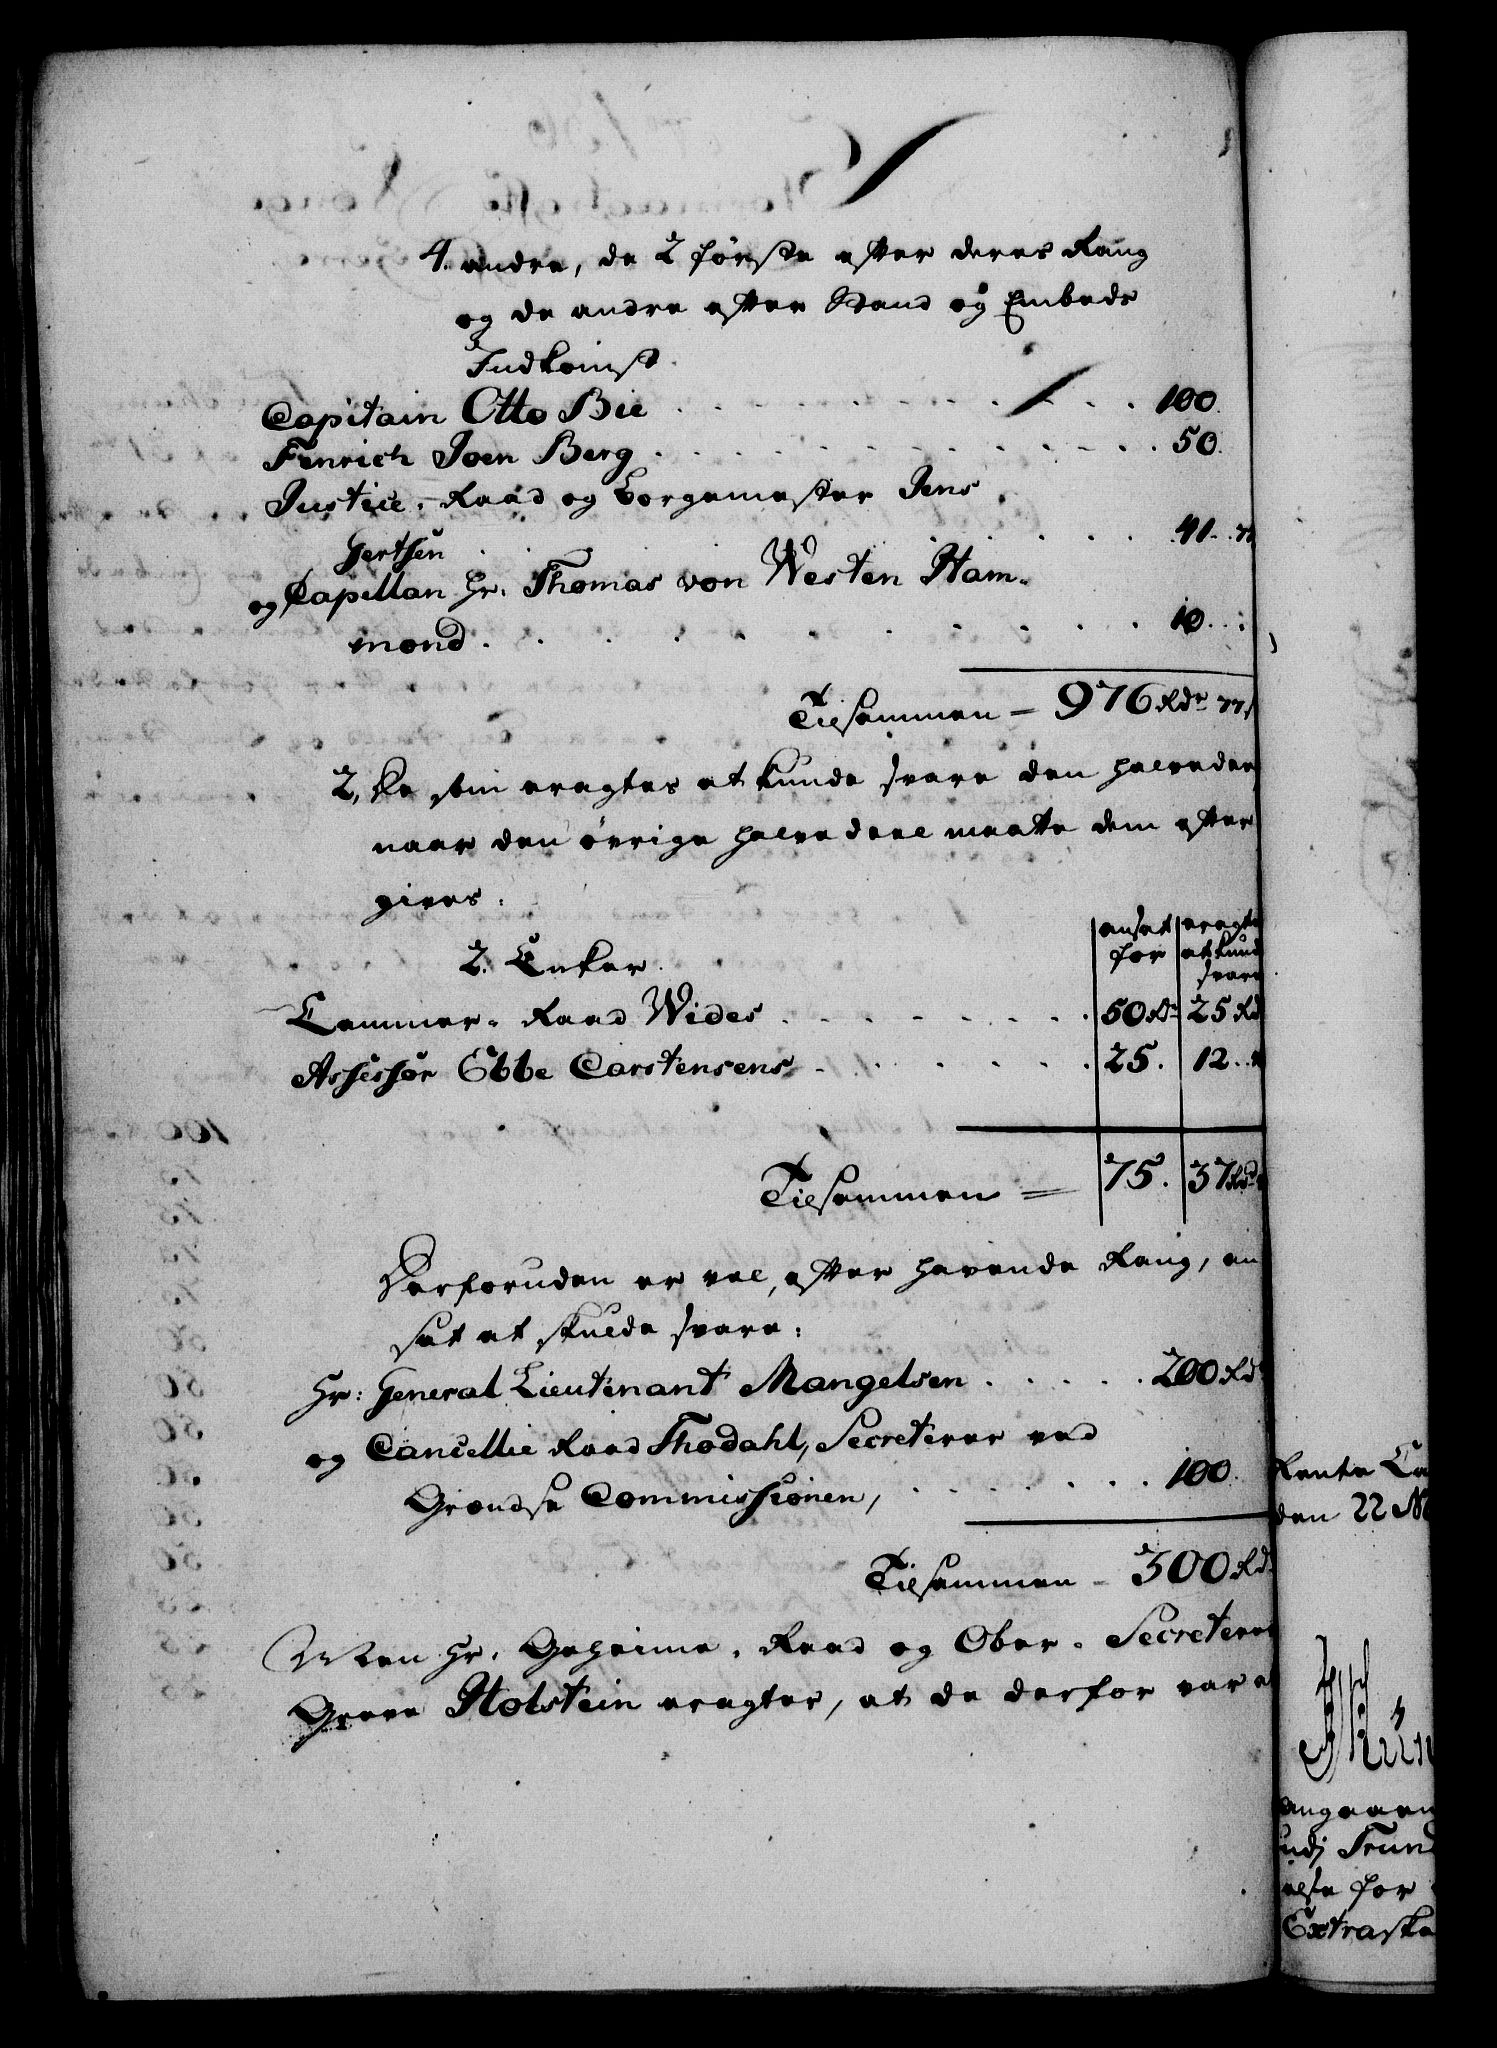 4. andre, de 2 første efter deres Rang
og de andre efter Stand og Embeds
Indkomst.
Capitain Otto Bie . . . . . . . . 100.
Fenrich Joen Berg . . . . . . . . 50.
Justice-Raad og Borgemester Jens
Gertsen . . . . . . . . 41..
og Capellan Hr. Thomas von Westen Ham-
mond . . . . . . . . 10..
Tilsammen – 976 Rdr 77
2, De som eragtes at kunde svare den halve deel
naar den øvrige halve deel maatte dem efter
gives.
ansat eragte
2. Enker. for at kund
svare
Cammer-Raad Wides . . . . . . . 50 Rdr 25 Rd
Assessor Ebbe Carstensens . . . . . . 25. 12..
Tilsammen = 75. 37 Rd
Desforuden er vel, efter havende Rang, an
sat at skulde svare:
Hr: General Lieutenant Mangelsen . . . . . 200 Rd
og Cancellie Raad Thodahl, Secreterer ved
Grændse Commissionen, . . . . . . 100.
Tilsammen – 300 Rd
Men Hr. Geheime-Raad og Ober-Secreterer
Greve Holstein eragter, at de derfor var
Rente Ca
den 22 M
angaaen
udj Trun
else for
Extraska